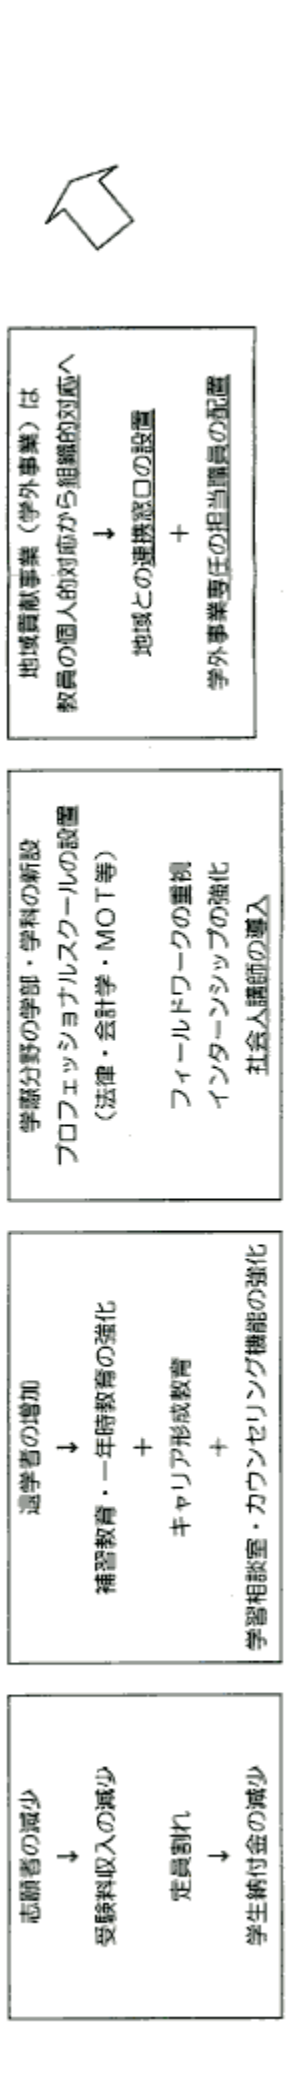 志願者の減少
↓
受験料収入の減少
定員割れ
↓
学生納付金の減少
退学者の増加
↓
補習教育・一年時教育の強化
+
キャリア形成教育
+
学習相談室・カウンセリング機能の強化
学際分野の学部・学科の新設
プロフェッショナルスクールの設置
(法律・会計学・MOT等)
フィールドワークの重視
インターンシップの強化
社会人講師の導入
地域貢献事業(学外事業)は
教員の個人的対応から組織的対応へ
↓
地域との連携窓口の設置
+
学外事業専任の担当職員の配置